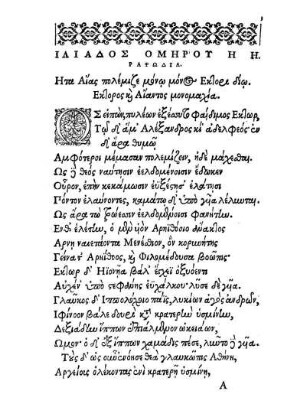 ΙΛΙΑΔΟΣ ΟΜΗΡΟΥ Η Η.
ΡΑΨΩΔΙΑ.
Ητα Αἴας πολέμιζε μόνῳ μόνος Εκτορι δίῳ.
Εκτορος κ Αἴαντος μονομαχία.
ΩΣ εἰπὼν, πυλέων ἐξέσσυτο φαίδιμος Εκτωρ,
Τῷ δ' ἅμ' Αλέξανδρος κί ἀδελφεός· ἐν
δ' ἄρα θυμῷ
Αμφότεροι μέμασαν πολεμίζειν, ἠδὲ μάχεσθαι.
Ως δὲ θεὸς ναύτῃσιν ἐελδομένοισιν ἔδωκεν
Οὖρον, ἐπήν κεκάμωσιν ἐυξέστῃς ἐλάτῃσι
Πόντον ἐλαύνοντες, καμάτῳ δ' ὑπὸ γυῖα λέλυνται.
Ως ἄρα τὼ τρώεσσιν ἐελδομένοισι φανήτην.
Ενθ' ἑλέτην, ὁ μὲν υἱὸν Αρηϊθόοιο ἄνακτος
Αρνῃ ναιετάοντα Μενέσθιον, ὃν κορυνήτης
Γείνατ' Αρηΐθοος, κ Φιλομέδουσα βοῶπις.
Εκτωρ δ' Ηϊονῆα βάλ' ἔγχεϊ ὀξυόεντι
Αὐχέν' ὑπὸ στεφάνης εὐχάλκου· λῦσε δὲ γυῖα.
Γλαῦκος δ' Ιππολόχοιο πάϊς, λυκίων ἀγὸς ἀνδρῶν,
Ιφίνοον βάλε δουρὶ κτ κρατερὴν ὑσμίνην,
Δεξιάδην ἵππων ἐπιάλμενον ὠκειάων,
Ωμον· ὁ δ' ἐξ ἵππων χαμάδις πέσε, λύντο δὲ γυῖα.
Τοὺς δ' ὡς οὖν ἐνόησε θεὰ γλαυκῶπις Αθήνη,
Αργείους ὀλέκοντας ἐνὶ κρατερῇ ὑσμίνῃ,
A